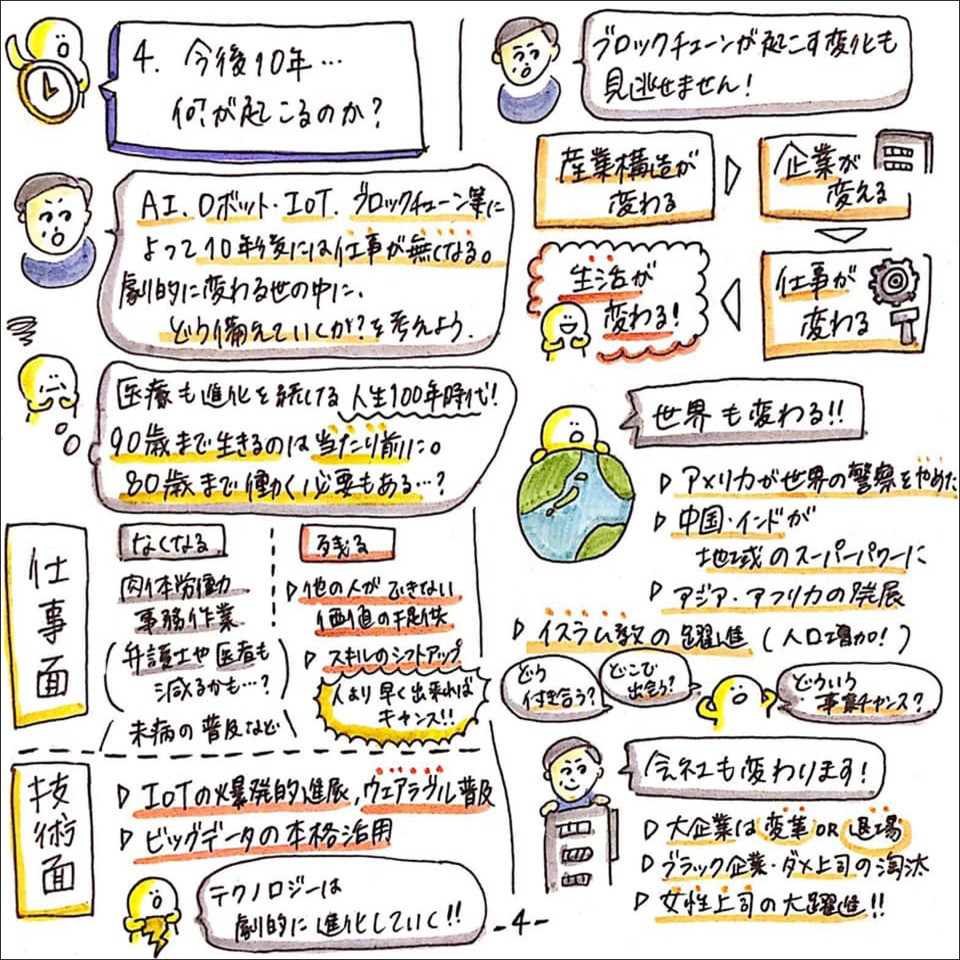 4. 今後10年…
何が起こるのか?
AI、ロボット・IoT、ブロックチェーン等に
よって10年後には仕事が無くなる。
劇的に変わる世の中に、
どう備えていくか?を考えよう。
医療も進化を続ける 人生100年時代!
90歳まで生きるのは当たり前に。
80歳まで働く必要もある…?
仕事面
なくなる
肉体労働
事務作業
(弁護士や医者も
減るかも…?)
(未病の普及など)
残る
▷他の人ができない
価値の提供
▷スキルのシフトアップ
人より早く出来れば
チャンス!!
技術面
▷IoTの爆発的進展、ウェアラブル普及
▷ビッグデータの本格活用
テクノロジーは
劇的に進化していく!!
ブロックチェーンが起こす変化も
見逃せません!
産業構造が
変わる
企業が
変える
仕事が
変わる
生活が
変わる!
世界も変わる!!
▷アメリカが世界の警察をやめた
▷中国・インドが
地域のスーパーパワーに
▷アジア・アフリカの発展
▷イスラム教の躍進(人口増加!)
どう
付き合う?
どこで
出会う?
どういう
事業チャンス?
会社も変わります!
▷大企業は変革OR退場
▷ブラック企業・ダメ上司の淘汰
▷女性上司の大躍進!!
-4-